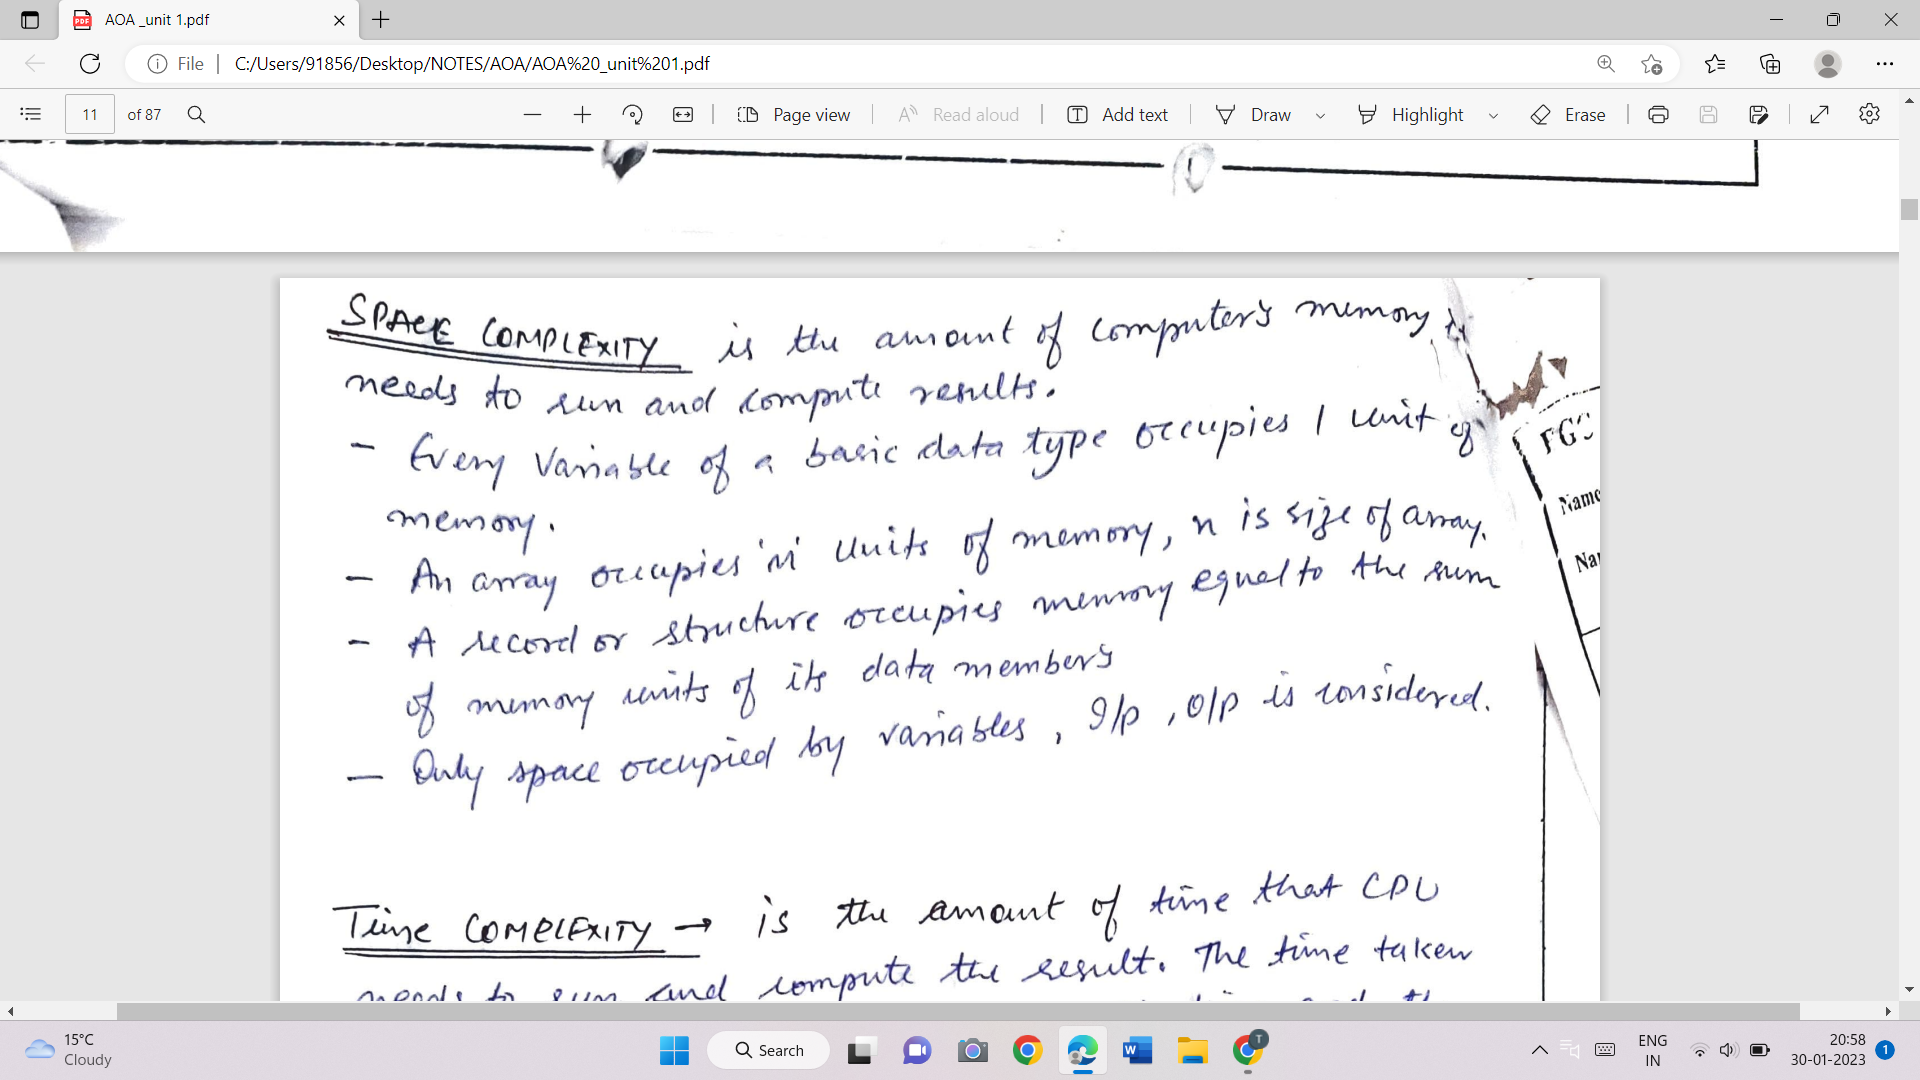 AOA _unit 1.pdf
File C:/Users/91856/Desktop/NOTES/AOA/AOA%20_unit%201.pdf
11 of 87 Page view Read aloud Add text Draw Highlight Erase
SPACE COMPLEXITY is the amount of computer's memory it
needs to run and compute results.
- Every Variable of a basic data type occupies 1 unit of
memory.
- An array occupies 'n' units of memory, n is size of array.
- A record or structure occupies memory equal to the sum
of memory units of its data member's
- Only space occupied by variables, I/p, O/p is considered.
Time COMPLEXITY → is the amount of time that CPU
needs to run and compute the result. The time taken
Name
15°C
Cloudy
Search
W
T
ENG
IN
20:58
30-01-2023
1